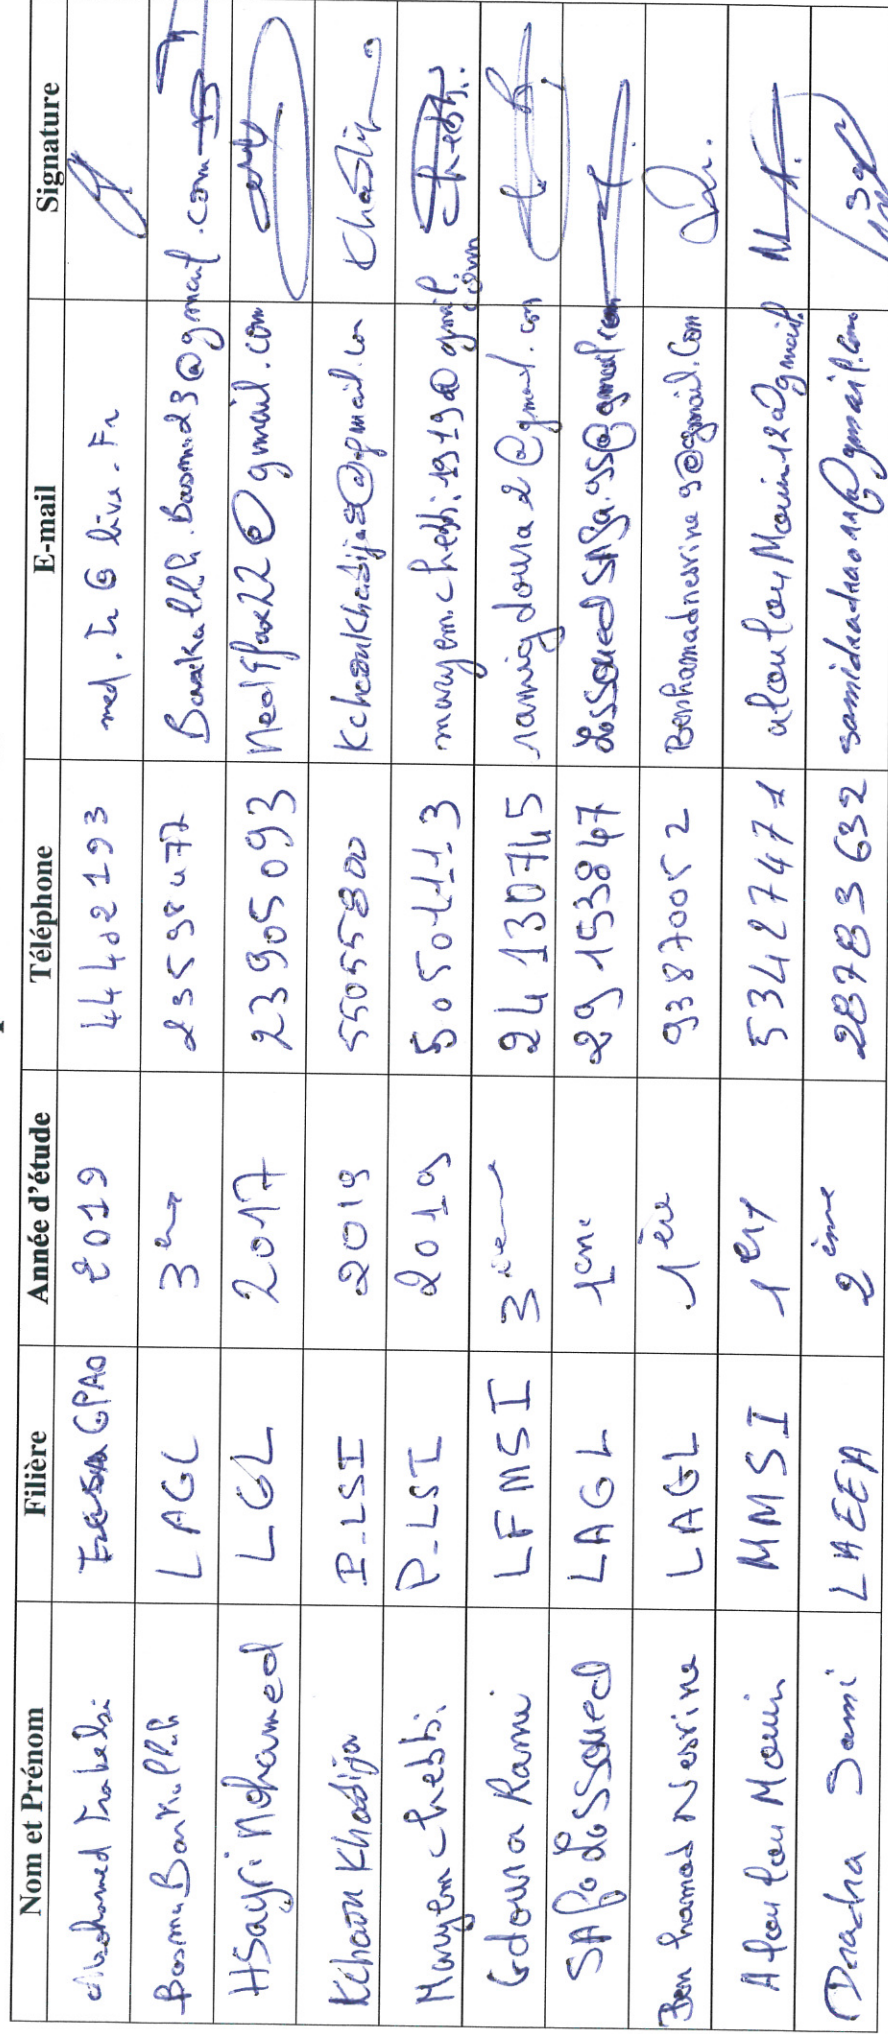 Nom et Prénom Filière Année d'étude Téléphone E-mail Signature
Mohamed Trabelsi GPAO 2019 44402193 med.Tr@live.Fr
Basma Barkallah LAGL 3em 23598477
HSayri Mohamed LGL 2017 23905093 @gmail.com
Kchaou Khadija P-LSI 2019 55055800 Kchaoukhadija@gmail.com Khadija
Maryem chebbi P-LSI 2019 50501113 maryem.chebbi1919@gmail.com chebbi
Gdoura Rami LFMSI 3ième 24130745 ramigdoura2@gmail.com
Safa Lassoued LAGL 1ere 29153847 Lassoued safa.95@gmail.com
Ben hamad Nesrine LAGL 1ère 93870052 Benhamadnesrine9@gmail.com
Aloulou Mouin MMSI 1ery 53427471 aloulouMouin12@gmail
Daadra Sami LAEEA 2ème 28783632